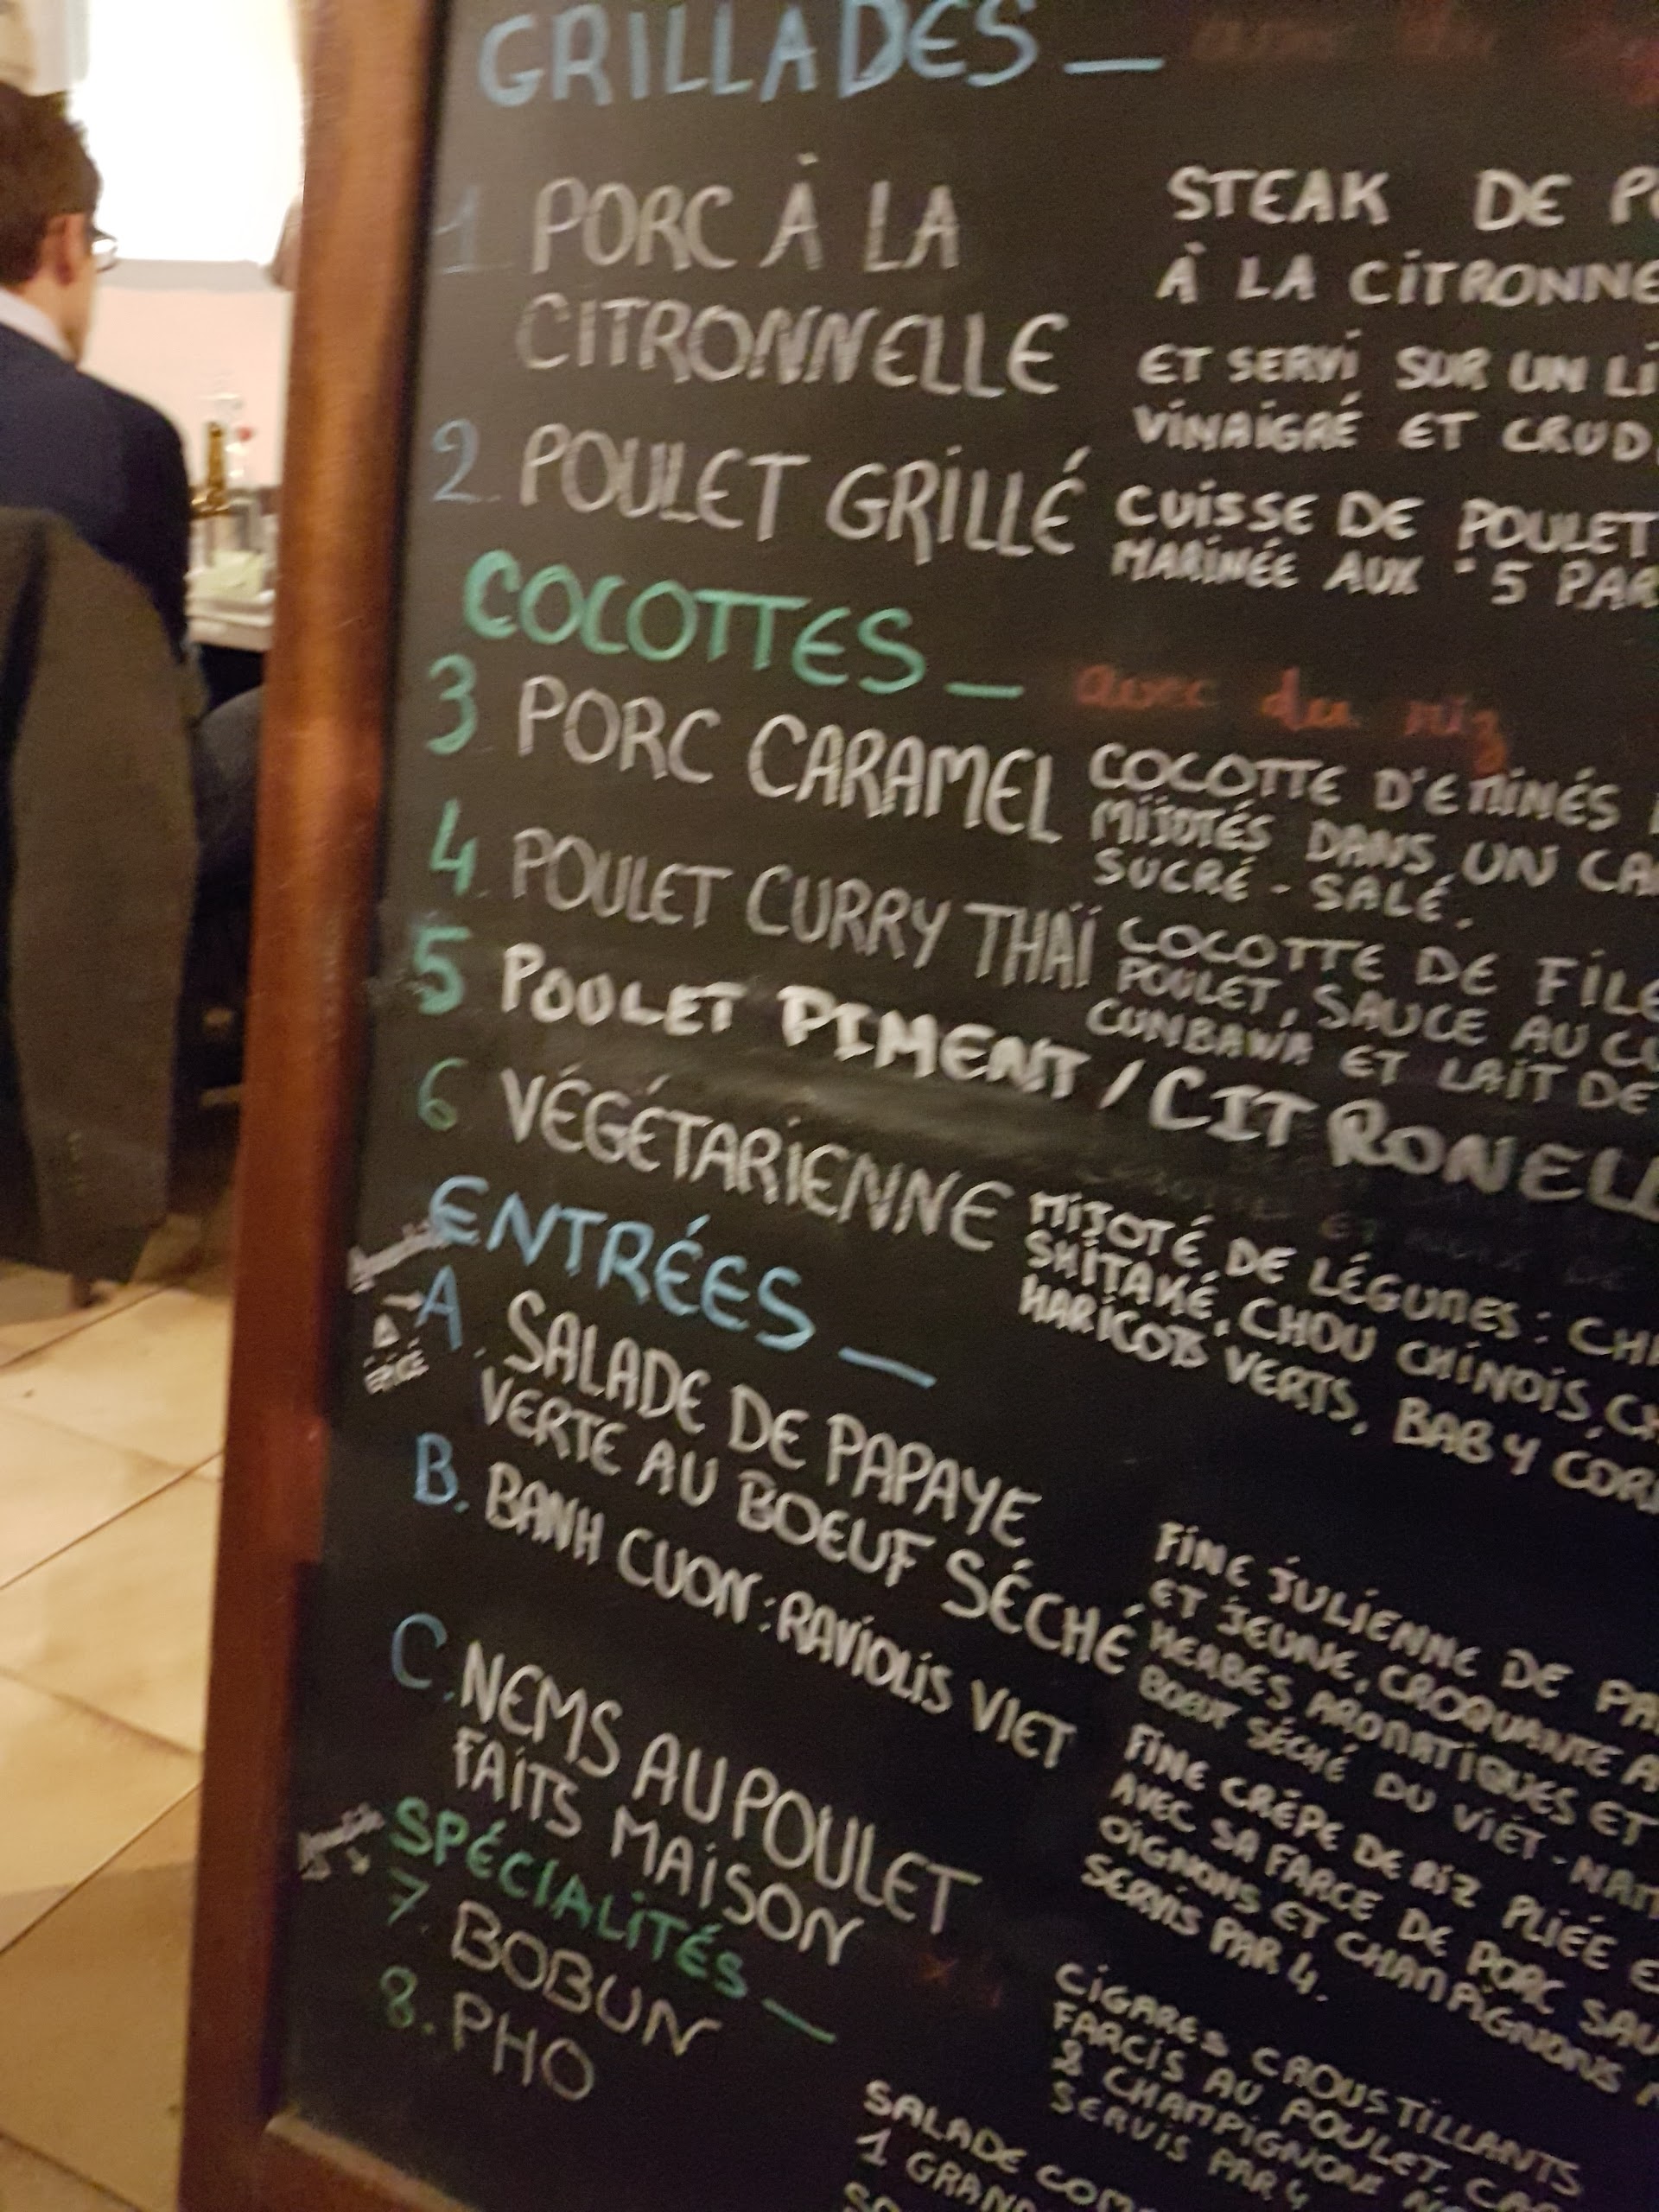 GRILLADES —
1 PORC À LA
CITRONNELLE
STEAK DE
À LA CITRONNE
ET SERVI SUR UN
VINAIGRÉ ET CRUD
2. POULET GRILLÉ
CUISSE DE POULET
MARINÉE AUX "5 PAR
COCOTTES — avec du riz
3. PORC CARAMEL
COCOTTE D'EMINÉS
MIJOTÉS DANS UN
SUCRÉ - SALÉ.
4. POULET CURRY THAÏ
COCOTTE DE FILE
POULET, SAUCE AU
CONBAWA ET LAIT DE
5 POULET PIMENT / CITRONELL
6 VÉGÉTARIENNE
MIJOTÉ DE LÉGUMES :
SHÏTAKÉ, CHOU CHINOIS,
HARICOTS VERTS, BABY COR
ENTRÉES —
→ A. SALADE DE PAPAYE
VERTE AU BOEUF SÉCHÉ
ÉPICÉ
FINE JULIENNE DE PA
ET JEUNE, CROQUANTE
HERBES AROMATIQUES ET
BOEUF SÉCHÉ DU VIÊT-NAM
B. BANH CUON : RAVIOLIS VIET
FINE CRÊPE DE RIZ PLIÉE
AVEC SA FARCE DE PORC
OIGNONS ET CHAMPIGNONS
SERVIS PAR 4.
C. NEMS AU POULET
FAITS MAISON
x4
CIGARES CROUSTILLANTS
FARCIS AU POULET,
& CHAMPIGNONS
SERVIS PAR 4
SPÉCIALITÉS —
7. BOBUN
8. PHO
SALADE COM
1 GRAN